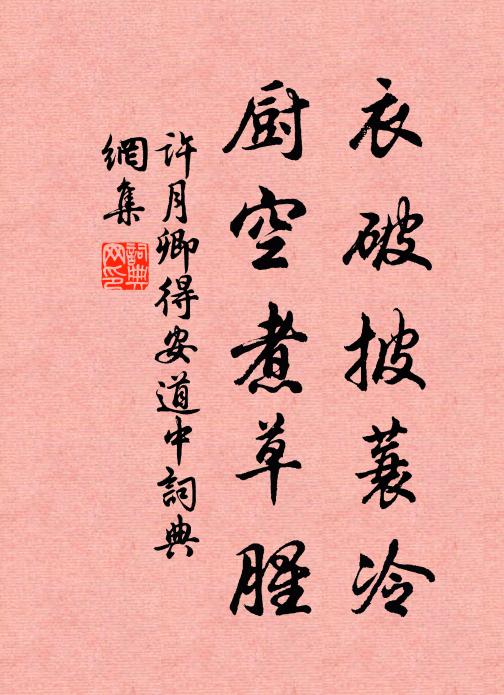 衣破披蓑冷
厨空煮草腥
许月卿得安道中詞典
網集
詞典
网印